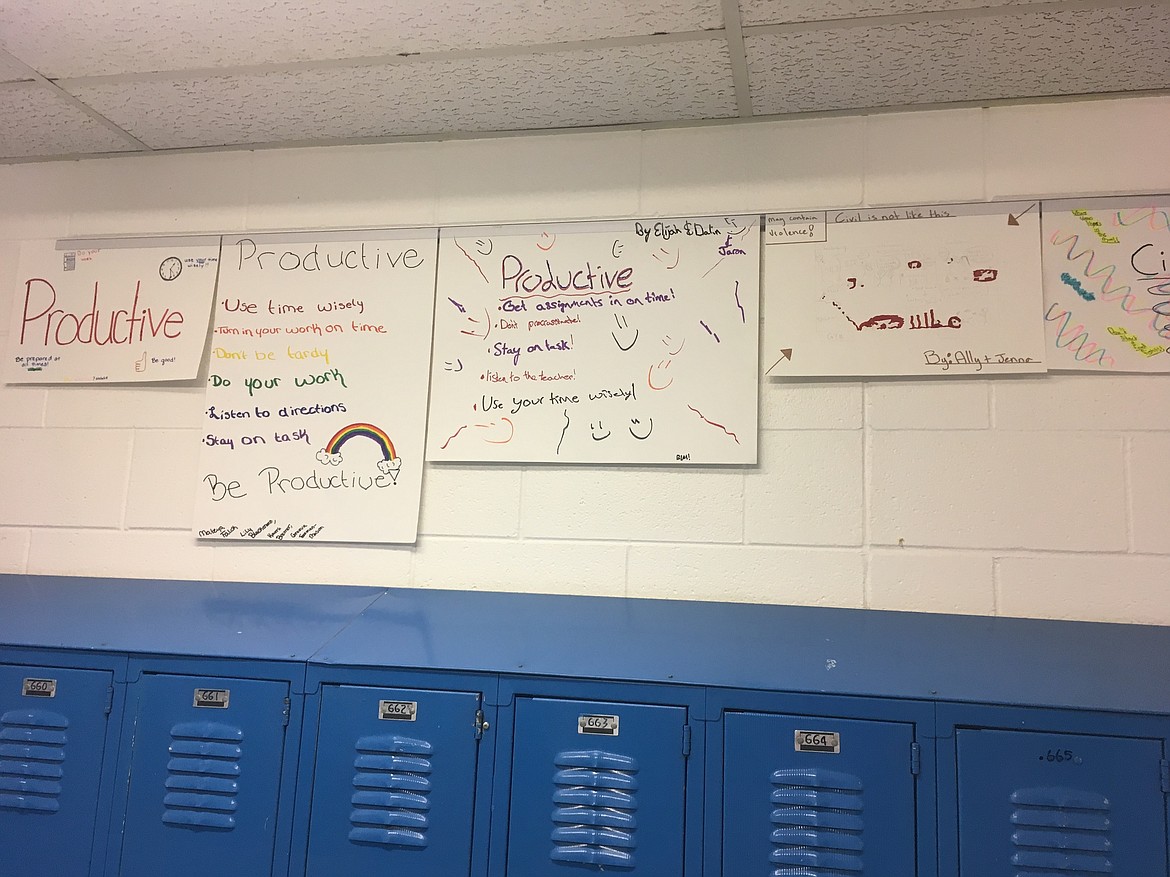 Be your
use your time
wisely!!
Productive
Be prepared at
all times!
Be good!
Productive
•Use time wisely
•Turn in your work on time
•Don't be tardy
•Do your work
•Listen to directions
•Stay on task
Be Productive!
Lily
By Elijah & Datin
& Jaron
Productive
•Get assignments in on time!
•Don't procrastinate!
•Stay on task!
•listen to the teacher!
•Use your time wisely!
may contain
violence!
Civil is not like this
By: Ally + Jenna
Ci
660
661
662
663
664
.665